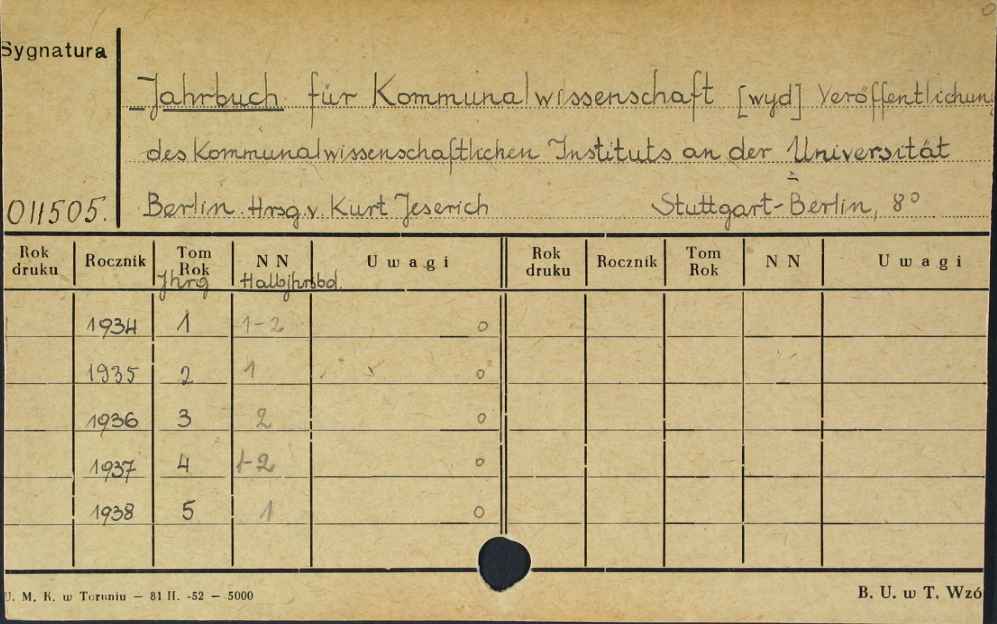 Sygnatura
Jahrbuch für Kommunalwissenschaft [wyd] Veröffentlichung
des Kommunalwissenschaftlichen Instituts an der Universität
011505. Berlin Hrsg. v. Kurt Jeserich Stuttgart-Berlin, 8°
Rok druku Rocznik Tom Rok NN Uwagi Rok druku Rocznik Tom Rok NN Uwagi
Jhrg Halbjhrsbd.
1934 1 1-2 o
1935 2 1 o
1936 3 2 o
1937 4 1-2 o
1938 5 1 o
U. M. K. w Toruniu — 81 II. -52 — 5000 B. U. w T. Wzó